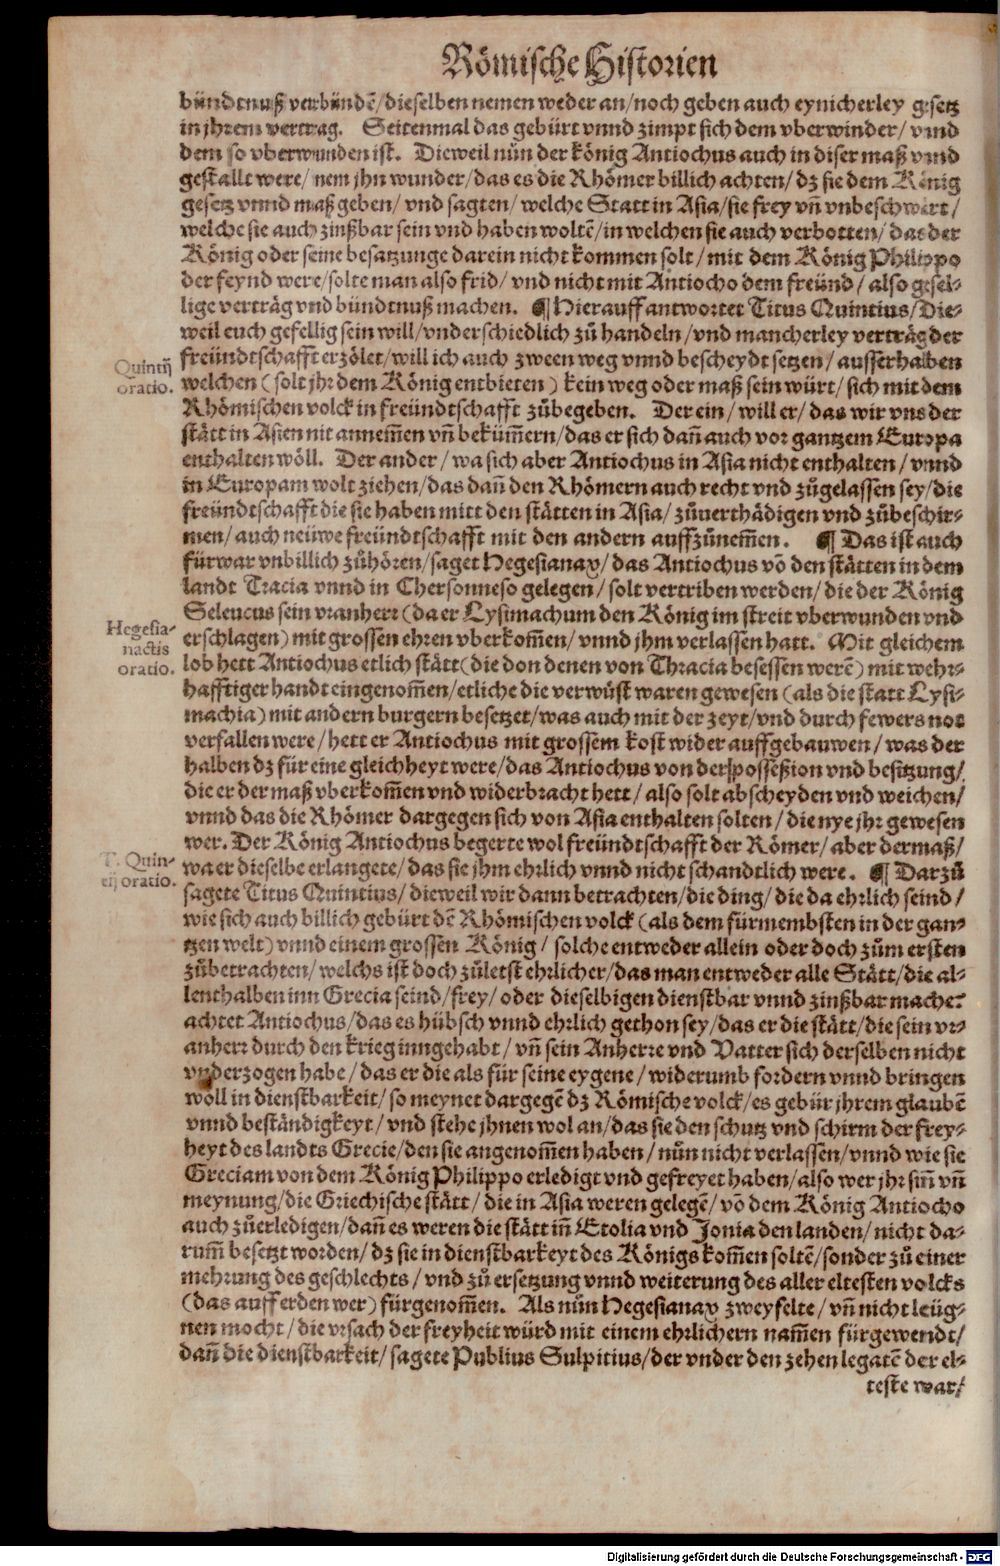 Römische Historien
bündtnuß verbündē/dieselben nemen weder an/noch geben auch eynicherley gesetz
in jhrem vertrag. Seitenmal das gebürt vnnd zimpt sich dem vberwinder/ vnnd
dem so vberwunden ist. Dieweil nůn der könig Antiochus auch in diser maß vnnd
gestallt were/ nem jhn wunder/das es die Rhömer billich achten/ dz sie dem König
gesetz vnnd maß geben/ vnd sagten/ welche Statt in Asia/sie frey vñ vnbeschwärt/
welche sie auch zinßbar sein vnd haben woltē/in welchen sie auch verbotten/ das der
König oder seine besatzunge darein nicht kommen solt/ mit dem König Philippo
der feynd were/solte man also frid/ vnd nicht mit Antiocho dem freünd/ also gesel-
lige verträg vnd bündtnuß machen. ¶ Hierauff antwortet Titus Quintius/Die-
weil euch gefellig sein will/vnderschiedlich zů handeln/ vnd mancherley verträg der
Quintij
oratio.
freündtschafft erzölet/will ich auch zween weg vnnd bescheydt setzen/ ausserhalben
welchen (solt jhr dem König entbieten) kein weg oder maß sein würt/ sich mit dem
Rhömischen volck in freündtschafft zůbegeben. Der ein/ will er/ das wir vns der
stätt in Asien nit annem̄en vñ beküm̄ern/das er sich dañ auch vor gantzem Europa
enthalten wöll. Der ander/ wa sich aber Antiochus in Asia nicht enthalten/ vnnd
in Europam wolt ziehen/das dañ den Rhömern auch recht vnd zůgelassen sey/die
freündtschafft die sie haben mitt den stätten in Asia/ zůuerthädigen vnd zůbeschir-
men/ auch neüwe freündtschafft mit den andern auffzůnem̄en. ¶ Das ist auch
fürwar vnbillich zůhören/saget Hegesianax/das Antiochus võ den stätten in dem
landt Tracia vnnd in Chersonneso gelegen/ solt vertriben werden/die der König
Seleucus sein vranherr (da er Lysimachum den König im streit vberwunden vnd
Hegesia-
nactis
oratio.
erschlagen) mit grossen ehren vberkom̄en/ vnnd jhm verlassen hatt. Mit gleichem
lob hett Antiochus etlich stätt (die don denen von Thracia besessen werē) mit wehr-
hafftiger handt eingenom̄en/etliche die verwüst waren gewesen (als die statt Lysi-
machia) mit andern burgern besetzet/was auch mit der zeyt/vnd durch fewers not
verfallen were/hett er Antiochus mit grossem kost wider auffgebauwen/ was der
halben dz für eine gleichheyt were/das Antiochus von der possession vnd besitzung/
die er der maß vberkom̄en vnd widerbracht hett/ also solt abscheyden vnd weichen/
vnnd das die Rhömer dargegen sich von Asia enthalten solten/ die nye jhr gewesen
wer. Der König Antiochus begerte wol freündtschafft der Römer/ aber dermaß/
T. Quin-
tij oratio.
wa er dieselbe erlangete/ das sie jhm ehrlich vnnd nicht schandtlich were. ¶ Darzů
sagete Titus Quintius/ dieweil wir dann betrachten/die ding/ die da ehrlich seind/
wie sich auch billich gebürt dē Rhömischen volck (als dem fürmembsten in der gan-
tzen welt) vnnd einem grossen König/ solche entweder allein oder doch zům ersten
zůbetrachten/ welchs ist doch zůletst ehrlicher/das man entweder alle Stätt/die al-
lenthalben inn Grecia seind/frey/ oder dieselbigen dienstbar vnnd zinßbar mache?
achtet Antiochus/das es hübsch vnnd ehrlich gethon sey/das er die stätt/die sein vr-
anherr durch den krieg inngehabt/ vñ sein Anherre vnd Vatter sich derselben nicht
vnderzogen habe/ das er die als für seine eygene/ widerumb fordern vnnd bringen
wöll in dienstbarkeit/ so meynet dargegē dz Römische volck/es gebür jhrem glaubē
vnnd beständigkeyt/ vnd stehe jhnen wol an/das sie den schutz vnd schirm der frey-
heyt des landts Grecie/den sie angenom̄en haben/ nůn nicht verlassen/vnnd wie sie
Greciam von dem König Philippo erledigt vnd gefreyet haben/also wer jhr siñ vñ
meynung/die Griechische stätt/ die in Asia weren gelegē/ võ dem König Antiocho
auch zůerledigen/dañ es weren die stätt iñ Etolia vnd Jonia den landen/ nicht da-
rum̄ besetzt worden/ dz sie in dienstbarkeyt des Königs kom̄en soltē/sonder zů einer
mehrung des geschlechts/ vnd zů ersetzung vnnd weiterung des aller eltesten volcks
(das auff erden wer) fürgenom̄en. Als nůn Hegesianax zweyfelte/ vñ nicht leüg-
nen mocht/ die vrsach der freyheit würd mit einem ehrlichern nam̄en fürgewendt/
dañ die dienstbarkeit/ sagete Publius Sulpitius/der vnder den zehen legatē der el-
teste war/
Digitalisierung gefördert durch die Deutsche Forschungsgemeinschaft - DFG